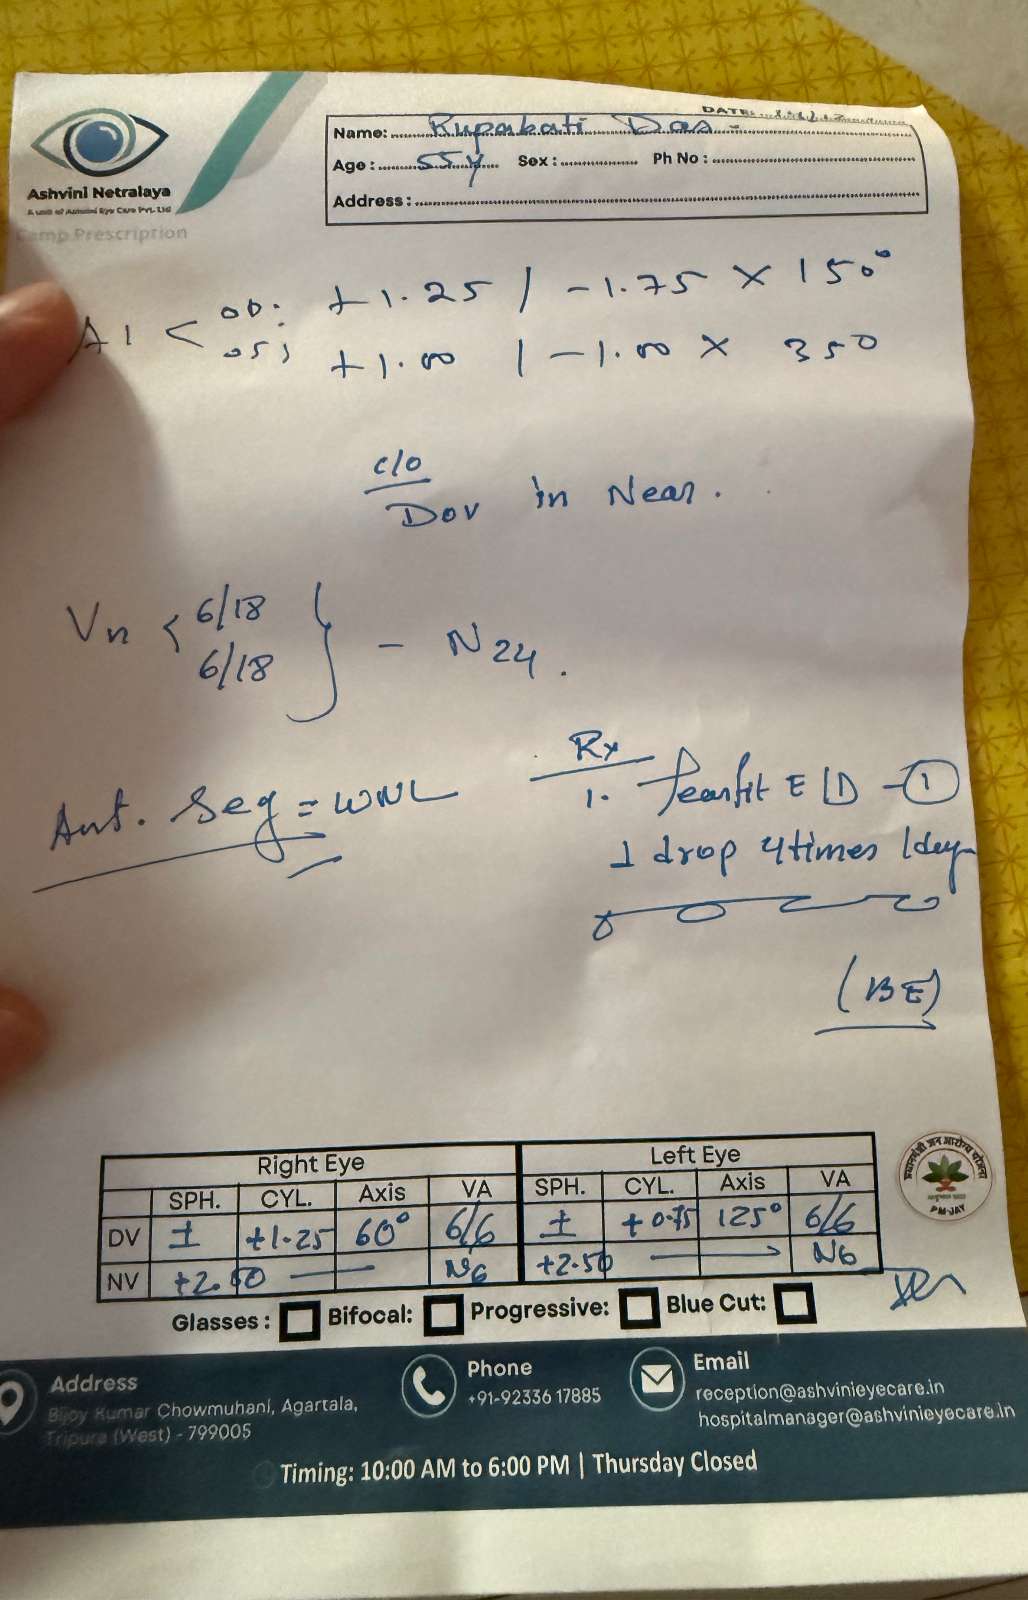 Ashvini Netralaya
A unit of Ashvini Eye Care Pvt. Ltd
Camp Prescription
DATE:
Name: Rupabati Das
Age : 55y Sex : Ph No :
Address :
OD: +1.25 / -1.75 × 150°
OS; +1.00 / -1.00 × 350
c/o
Dov in Near.
Vn < 6/18
6/18 } - N24.
Ant. Seg = WNL
Rx
1. E/D - 1
1 drop 4times /day
(BE)
Right Eye Left Eye
SPH. CYL. Axis VA SPH. CYL. Axis VA
DV ± +1.25 60° 6/6 ± +0.75 125° 6/6
NV +2.50 N6 +2.50 N6
Glasses : Bifocal: Progressive: Blue Cut:
प्रधानमंत्री जन आरोग्य योजना
PM-JAY
Address
Bijoy Kumar Chowmuhani, Agartala,
Tripura (West) - 799005
Phone
+91-92336 17885
Email
reception@ashvinieyecare.in
hospitalmanager@ashvinieyecare.in
Timing: 10:00 AM to 6:00 PM | Thursday Closed